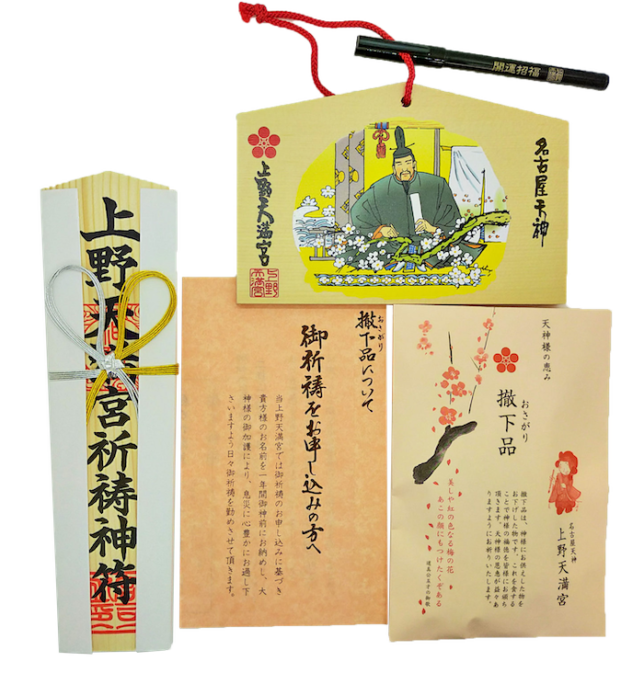 開運招福
名古屋天神
上野天満宮
上野天満宮
上野天満宮祈祷神符
撤下品について
おさがり
御祈祷をお申し込みの方へ
当上野天満宮では御祈祷のお申し込みに基づき
貴方様のお名前を一年間御神前にお納めし、大
神様の御加護により、息災に心豊かにお過し下
さいますよう日々御祈祷を勤めさせて頂きます。
天神様の恵み
撤下品
おさがり
撤下品は、神様にお供えした物を
お下げした物です。これを食する
ことで神様の福徳を皆様にお頒ち
頂きます。天神様の恩恵が益々あ
りますようにお祈りいたします。
名古屋天神
上野天満宮
美しや紅の色なる梅の花
あこの顔にもつけたくぞある
道真公五才の御歌